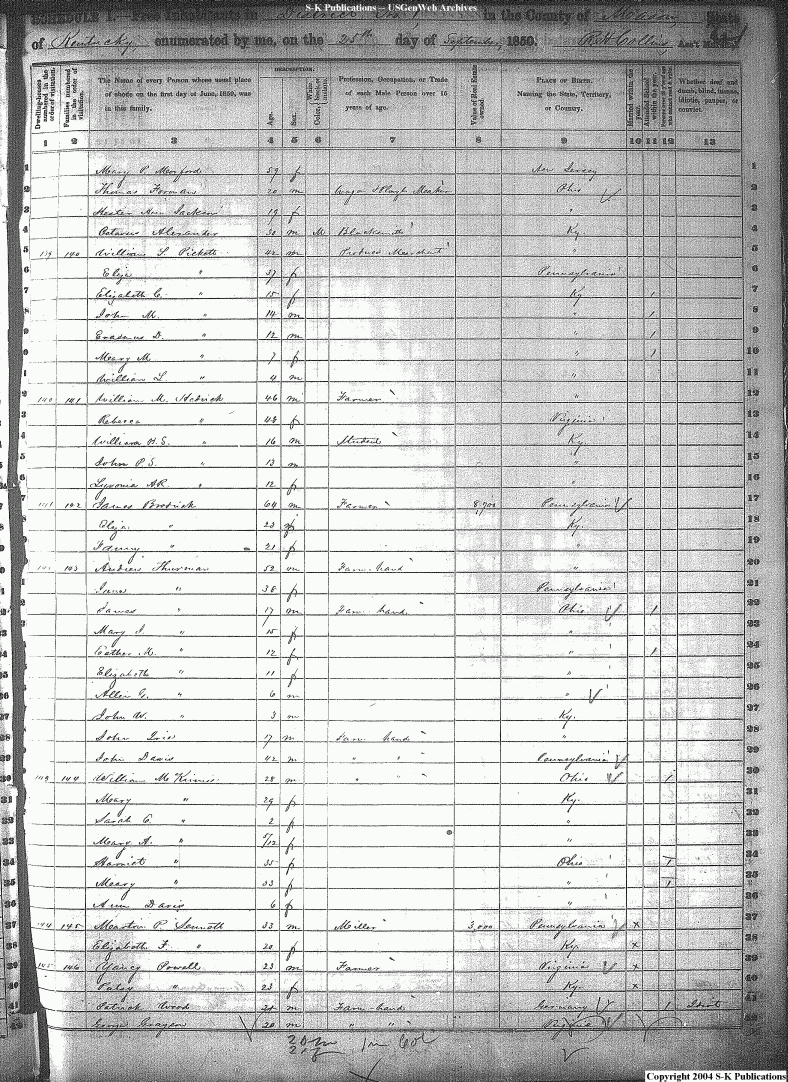 S-K Publications -- USGenWeb Archives
SCHEDULE I. in District No. 1 in the County of Mason State
of Kentucky enumerated by me, on the 25th day of September, 1850. R. H. Collins Ass't Marshal.
Dwelling-houses numbered in the order of visitation. Families numbered in the order of visitation. The Name of every Person whose usual place of abode on the first day of June, 1850, was in this family. DESCRIPTION. Age. Sex. Color, White, black, or mulatto. Profession, Occupation, or Trade of each Male Person over 15 years of age. Value of Real Estate owned. PLACE OF BIRTH. Naming the State, Territory, or Country. Married within the year. Attended School within the year. Whether deaf and dumb, blind, insane, idiotic, pauper, or convict.
1 2 3 4 5 6 7 8 9 10 11 12 13
1 Mary P. 59 f New Jersey 1
2 Thomas Forman 20 m Wagon & Plough Maker Ohio 2
3 Hester Ann Jackson 19 f " 3
4 Octavus Alexander 30 m M Blacksmith Ky 4
5 139 140 William S. Pickett 42 m Produce Merchant " 5
6 Eliza " 37 f Pennsylvania 6
7 Elizabeth C. " 15 f Ky 1 7
8 John M. " 14 m " 1 8
9 Erasmus D. " 12 m " 1 9
10 Mary M. " 7 f " 1 10
11 William L. " 4 m " 11
12 140 141 William M. Hedrick 46 m Farmer " 12
13 Rebecca " 48 f Virginia 13
14 William H. S. " 16 m Student Ky. 14
15 John P. S. " 13 m " 15
16 A R. " 12 f " 16
17 141 142 James Brodrick 64 m Farmer 8,700 Pennsylvania 17
18 Eliza " 23 f Ky. 18
19 Fanny " 21 f " 19
20 142 143 Andrew Thurman 52 m Farm hand " 20
21 Jane " 38 f Pennsylvania 21
22 James " 17 m Farm hand Ohio 1 22
23 Mary J. " 15 f " 23
24 Esther M. " 12 f " 1 24
25 Elizabeth " 11 f " 25
26 Allen G. " 6 m " 26
27 John W. " 3 m Ky. 27
28 John 17 m Farm hand " 28
29 John Davis 42 m " " Pennsylvania 29
30 143 144 William McKinnis 28 m " " Ohio 1 30
31 Mary " 29 f Ky. 31
32 Sarah C. " 2 f " 32
33 Mary A. " 5/12 f " 33
34 Harriet " 35 f Ohio 1 34
35 Mary " 33 f " 1 35
36 Ann Davis 6 f " 36
37 144 145 Marston P. Sennett 33 m Miller 3,000 Pennsylvania x 37
38 Elizabeth F. " 20 f Ky. x 38
39 145 146 Yancy Powell 23 m Farmer Virginia x 39
40 " 23 f Ky. x 40
41 Patrick Wood m Farm hand Germany 1 Idiot 41
42 George Grayson 20 m " " 42
20 m
In Col
Copyright 2004 S-K Publications